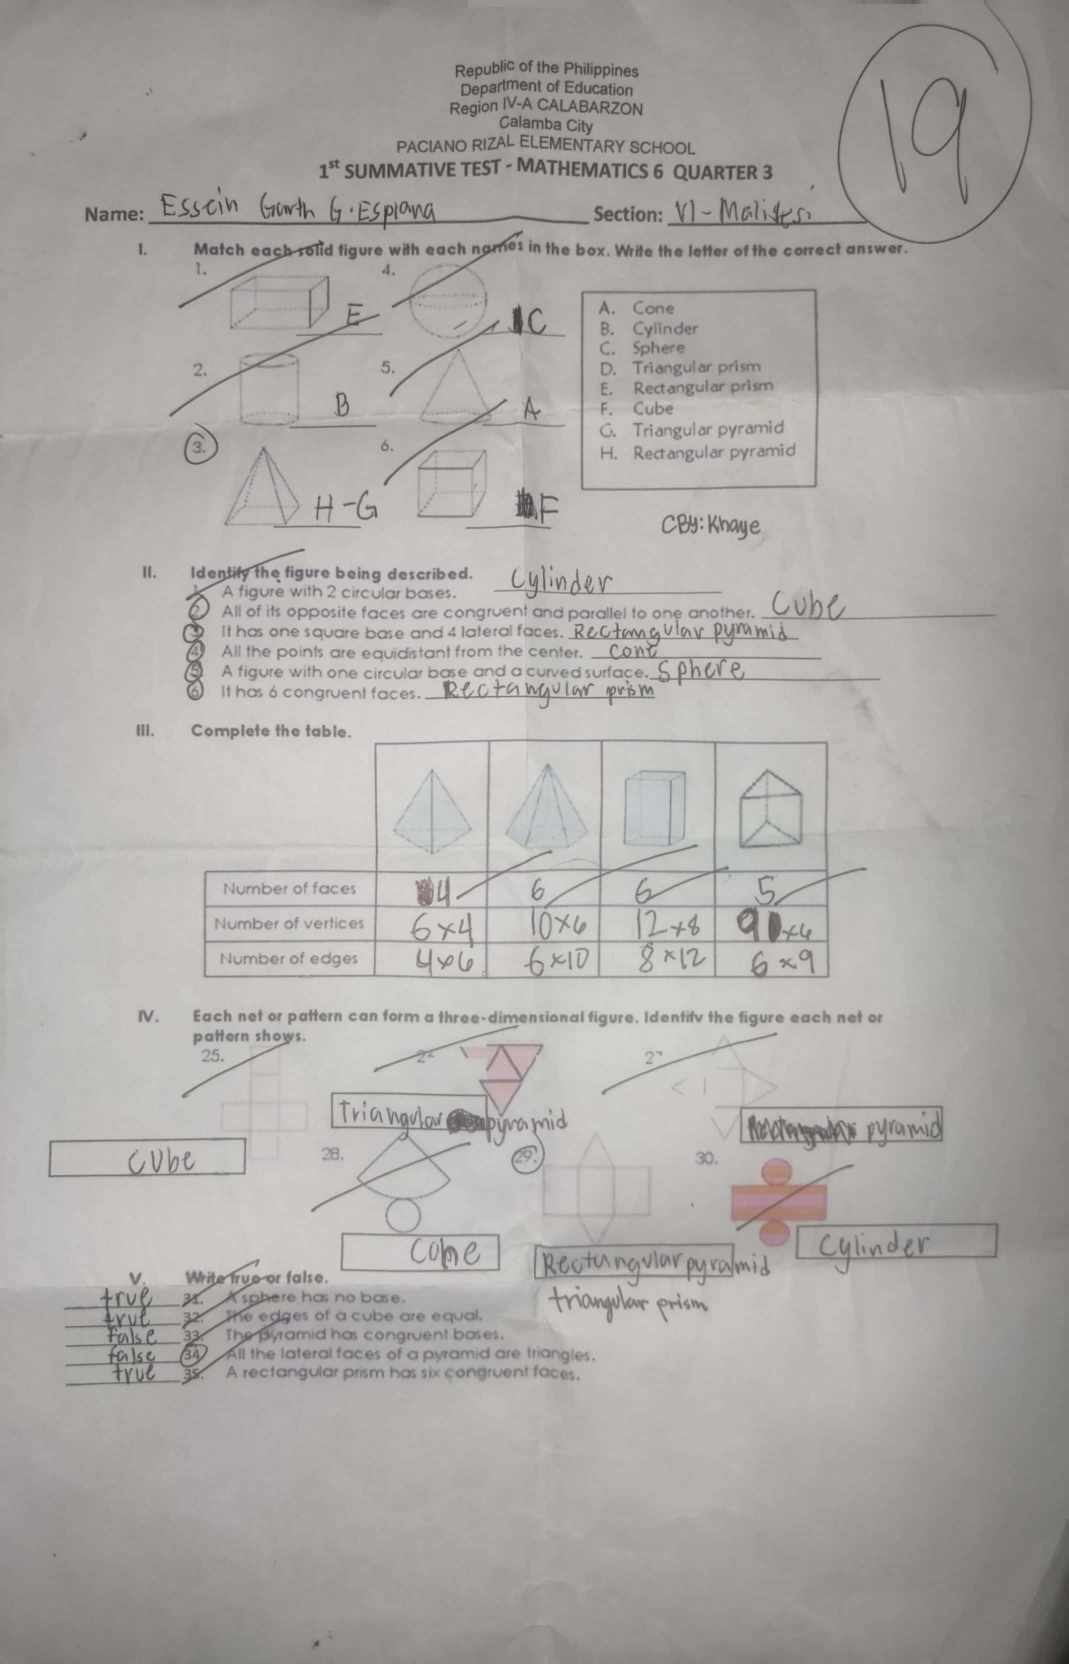 19
Republic of the Philippines
Department of Education
Region IV-A CALABARZON
Calamba City
PACIANO RIZAL ELEMENTARY SCHOOL
1st SUMMATIVE TEST - MATHEMATICS 6 QUARTER 3
Name: Essein Garth G. Espiana Section: VI-
I. Match each solid figure with each names in the box. Write the letter of the correct answer.
1. E
4. C
2. B
5. A
3. H-G
6. F
A. Cone
B. Cylinder
C. Sphere
D. Triangular prism
E. Rectangular prism
F. Cube
G. Triangular pyramid
H. Rectangular pyramid
CBY: Khaye
II. Identify the figure being described.
1. A figure with 2 circular bases. Cylinder
2. All of its opposite faces are congruent and parallel to one another. Cube
3. It has one square base and 4 lateral faces. Rectangular pyramid
4. All the points are equidistant from the center. Cone
5. A figure with one circular base and a curved surface. Sphere
6. It has 6 congruent faces. Rectangular prism
III. Complete the table.
Number of faces 4 6 6 5
Number of vertices 6x4 10x6 12x8 9x6
Number of edges 4x6 6x10 8x12 6x9
IV. Each net or pattern can form a three-dimensional figure. Identify the figure each net or
pattern shows.
25. Cube
Triangular pyramid
pyramid
28. Cone
29. Rectangular pyramid
triangular prism
30. Cylinder
V. Write true or false.
true 31. A sphere has no base.
true 32. The edges of a cube are equal.
false 33. The pyramid has congruent bases.
false 34. All the lateral faces of a pyramid are triangles.
true 35. A rectangular prism has six congruent faces.